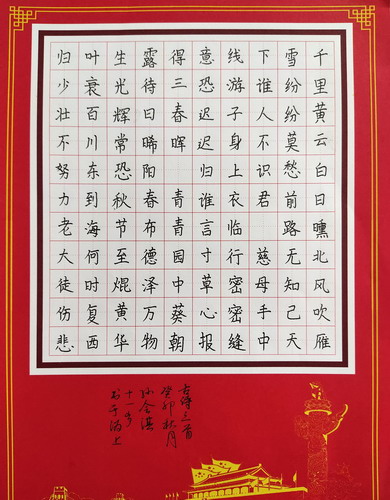 千里黄云白日曛北风吹雁
雪纷纷莫愁前路无知己天
下谁人不识君 慈母手中
线游子身上衣临行密密缝
意恐迟迟归谁言寸草心报
得三春晖 青青园中葵朝
露待日晞阳春布德泽万物
生光辉常恐秋节至焜黄华
叶衰百川东到海何时复西
归少壮不努力老大徒伤悲
古诗三首
癸卯秋月
十一岁